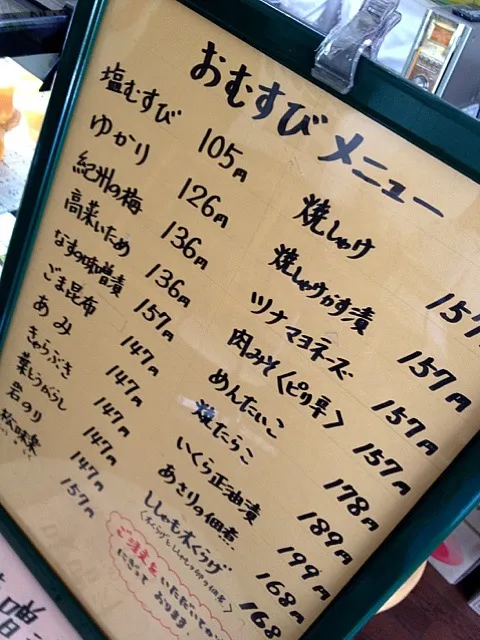 おむすび メニュー
塩むすび 105円
ゆかり 126円
紀州の梅 136円
高菜いため 136円
なすの味噌漬 157円
ごま昆布 147円
あみ 147円
きゃらぶき 147円
葉とうがらし 147円
岩のり 147円
松味来 157円
焼しゃけ 157
焼しゃけかす漬 157円
ツナマヨネーズ 157円
肉みそ〈ピリ辛〉 157円
めんたいこ 178円
焼たらこ 189円
いくら正油漬 199円
あさりの佃煮 168円
ししゃも木くらげ 168
ご注文をいただいてから
にぎって
おります。
噌